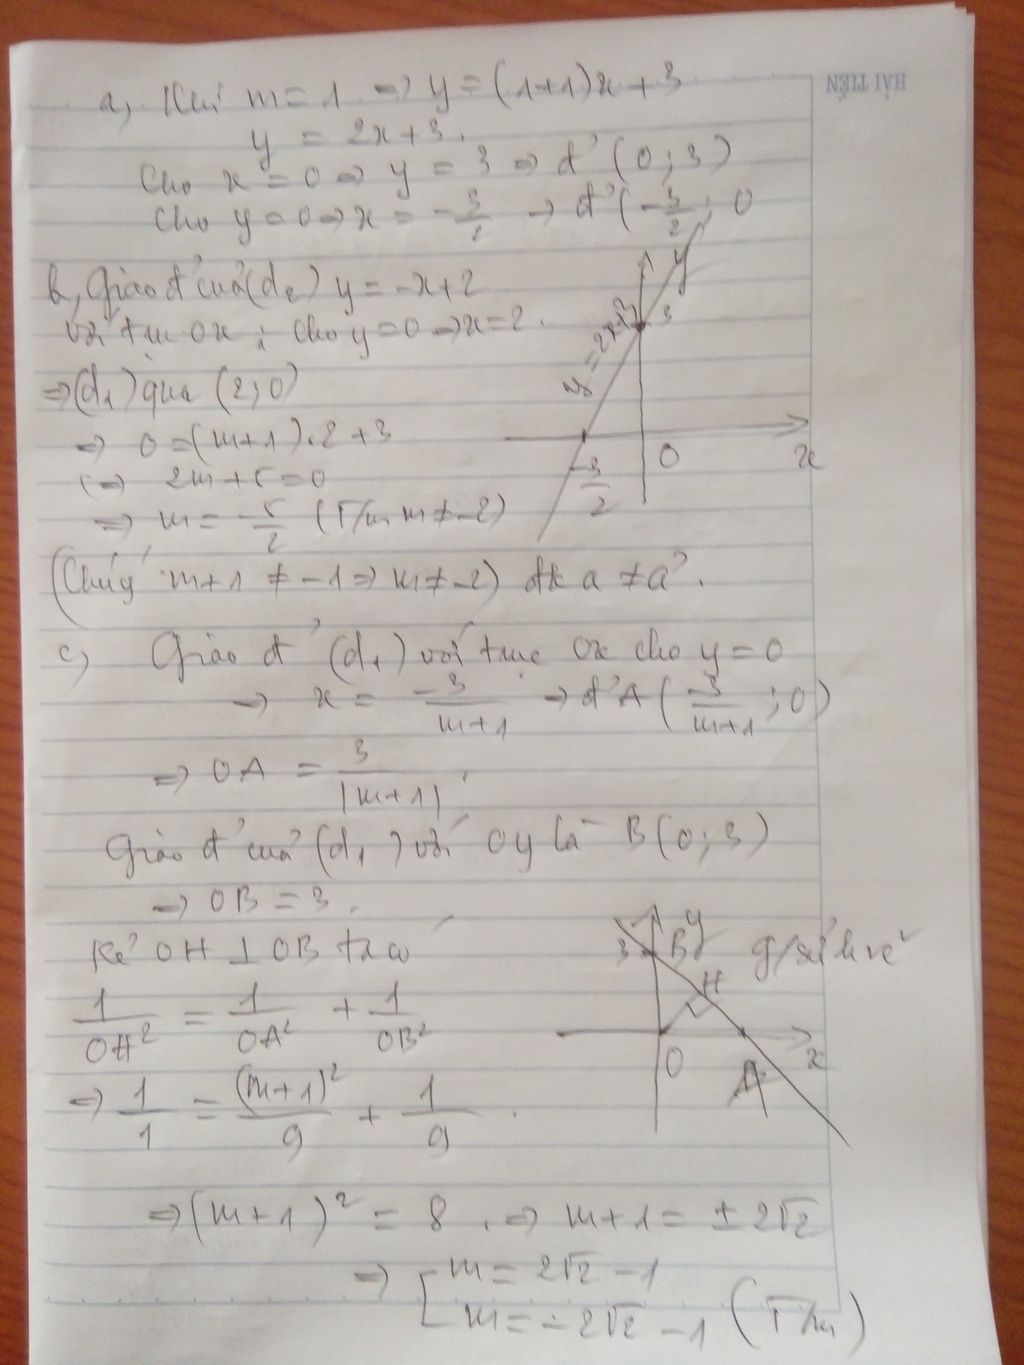 HẢI TIẾN
a, Khi m = 1 => y = (1+1)x + 3
y = 2x + 3.
Cho x = 0 => y = 3 => đ' (0; 3)
Cho y = 0 => x = -3/2 => đ' (-3/2; 0
b, Giao đ' của (d2) y = -x+2
với trục Ox; cho y = 0 => x = 2.
=> (d1) qua (2; 0)
=> 0 = (m+1).2 + 3
<=> 2m + 5 = 0
=> m = -5/2 (T/m m ≠ -2)
y
3
y = 2x+3
O
x
-3/2
(Chú ý m+1 ≠ -1 => m ≠ -2) đk a ≠ a'.
c, Giao đ' (d1) với trục Ox cho y = 0
=> x = -3/(m+1) => đ' A (-3/(m+1); 0)
=> OA = 3/|m+1|.
Giao đ' của (d1) với Oy là B (0; 3)
=> OB = 3.
Kẻ OH ⊥ OB ta có
1/OH² = 1/OA² + 1/OB²
=> 1/1 = (m+1)²/9 + 1/9.
y
3 B
g/sử h vẽ
H
O
A
x
=> (m+1)² = 8. => m+1 = ±2√2
=> [ m = 2√2 - 1
m = -2√2 - 1 (T/m)